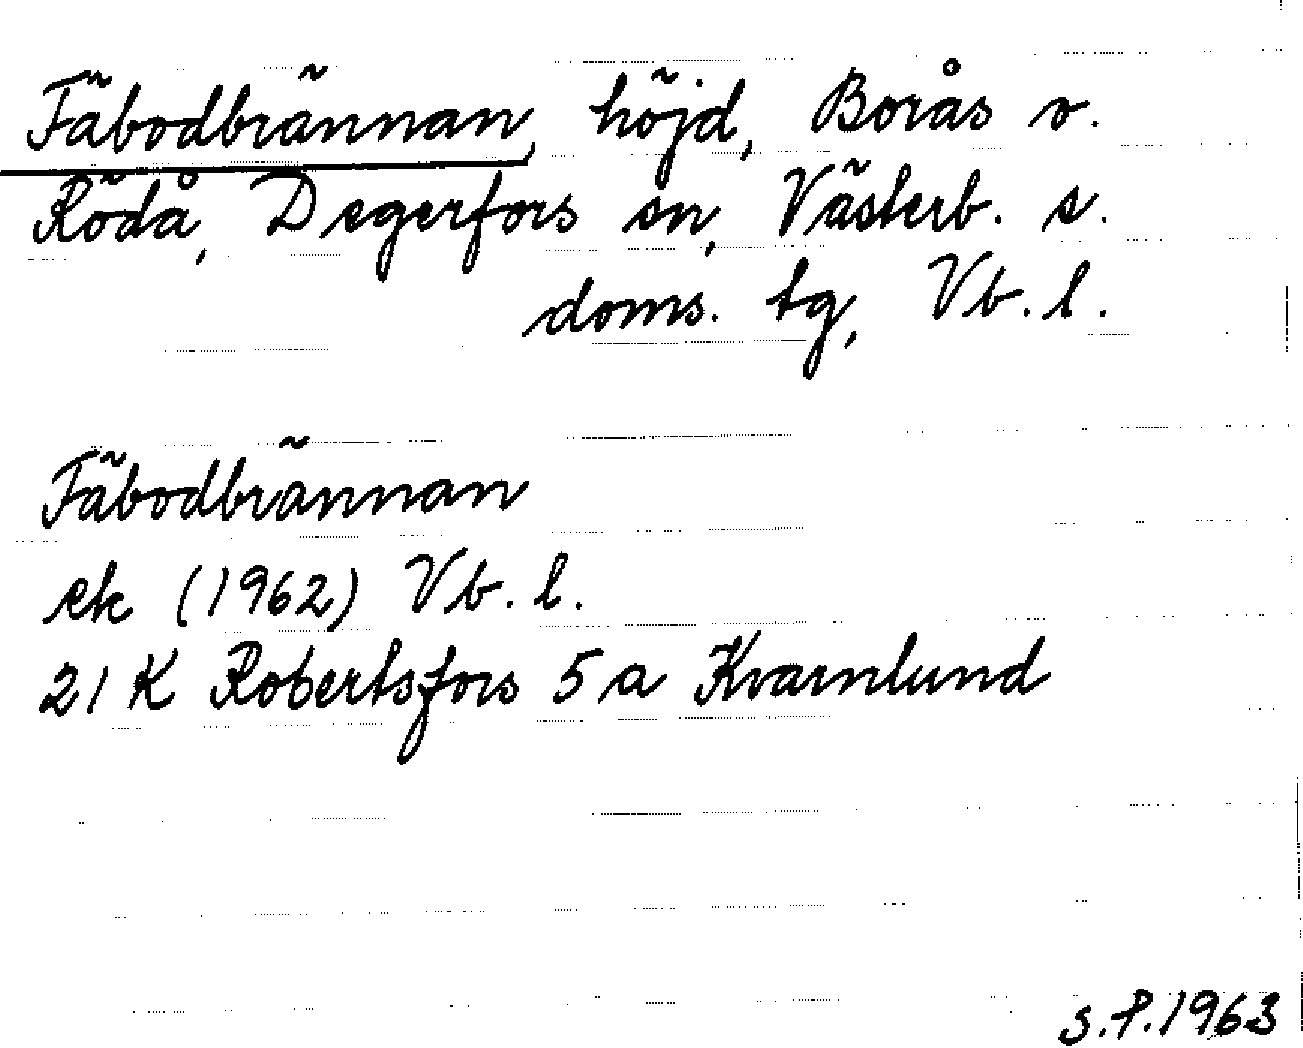 Fäbodbrännan, höjd, Borås o.
Rödå, Degerfors sn, Västerb. s.
doms. tg, Vb. l.
Fäbodbrännan
ek (1962) Vb. l.
21 K Robertsfors 5 a Kvarnlund
S.P. 1963